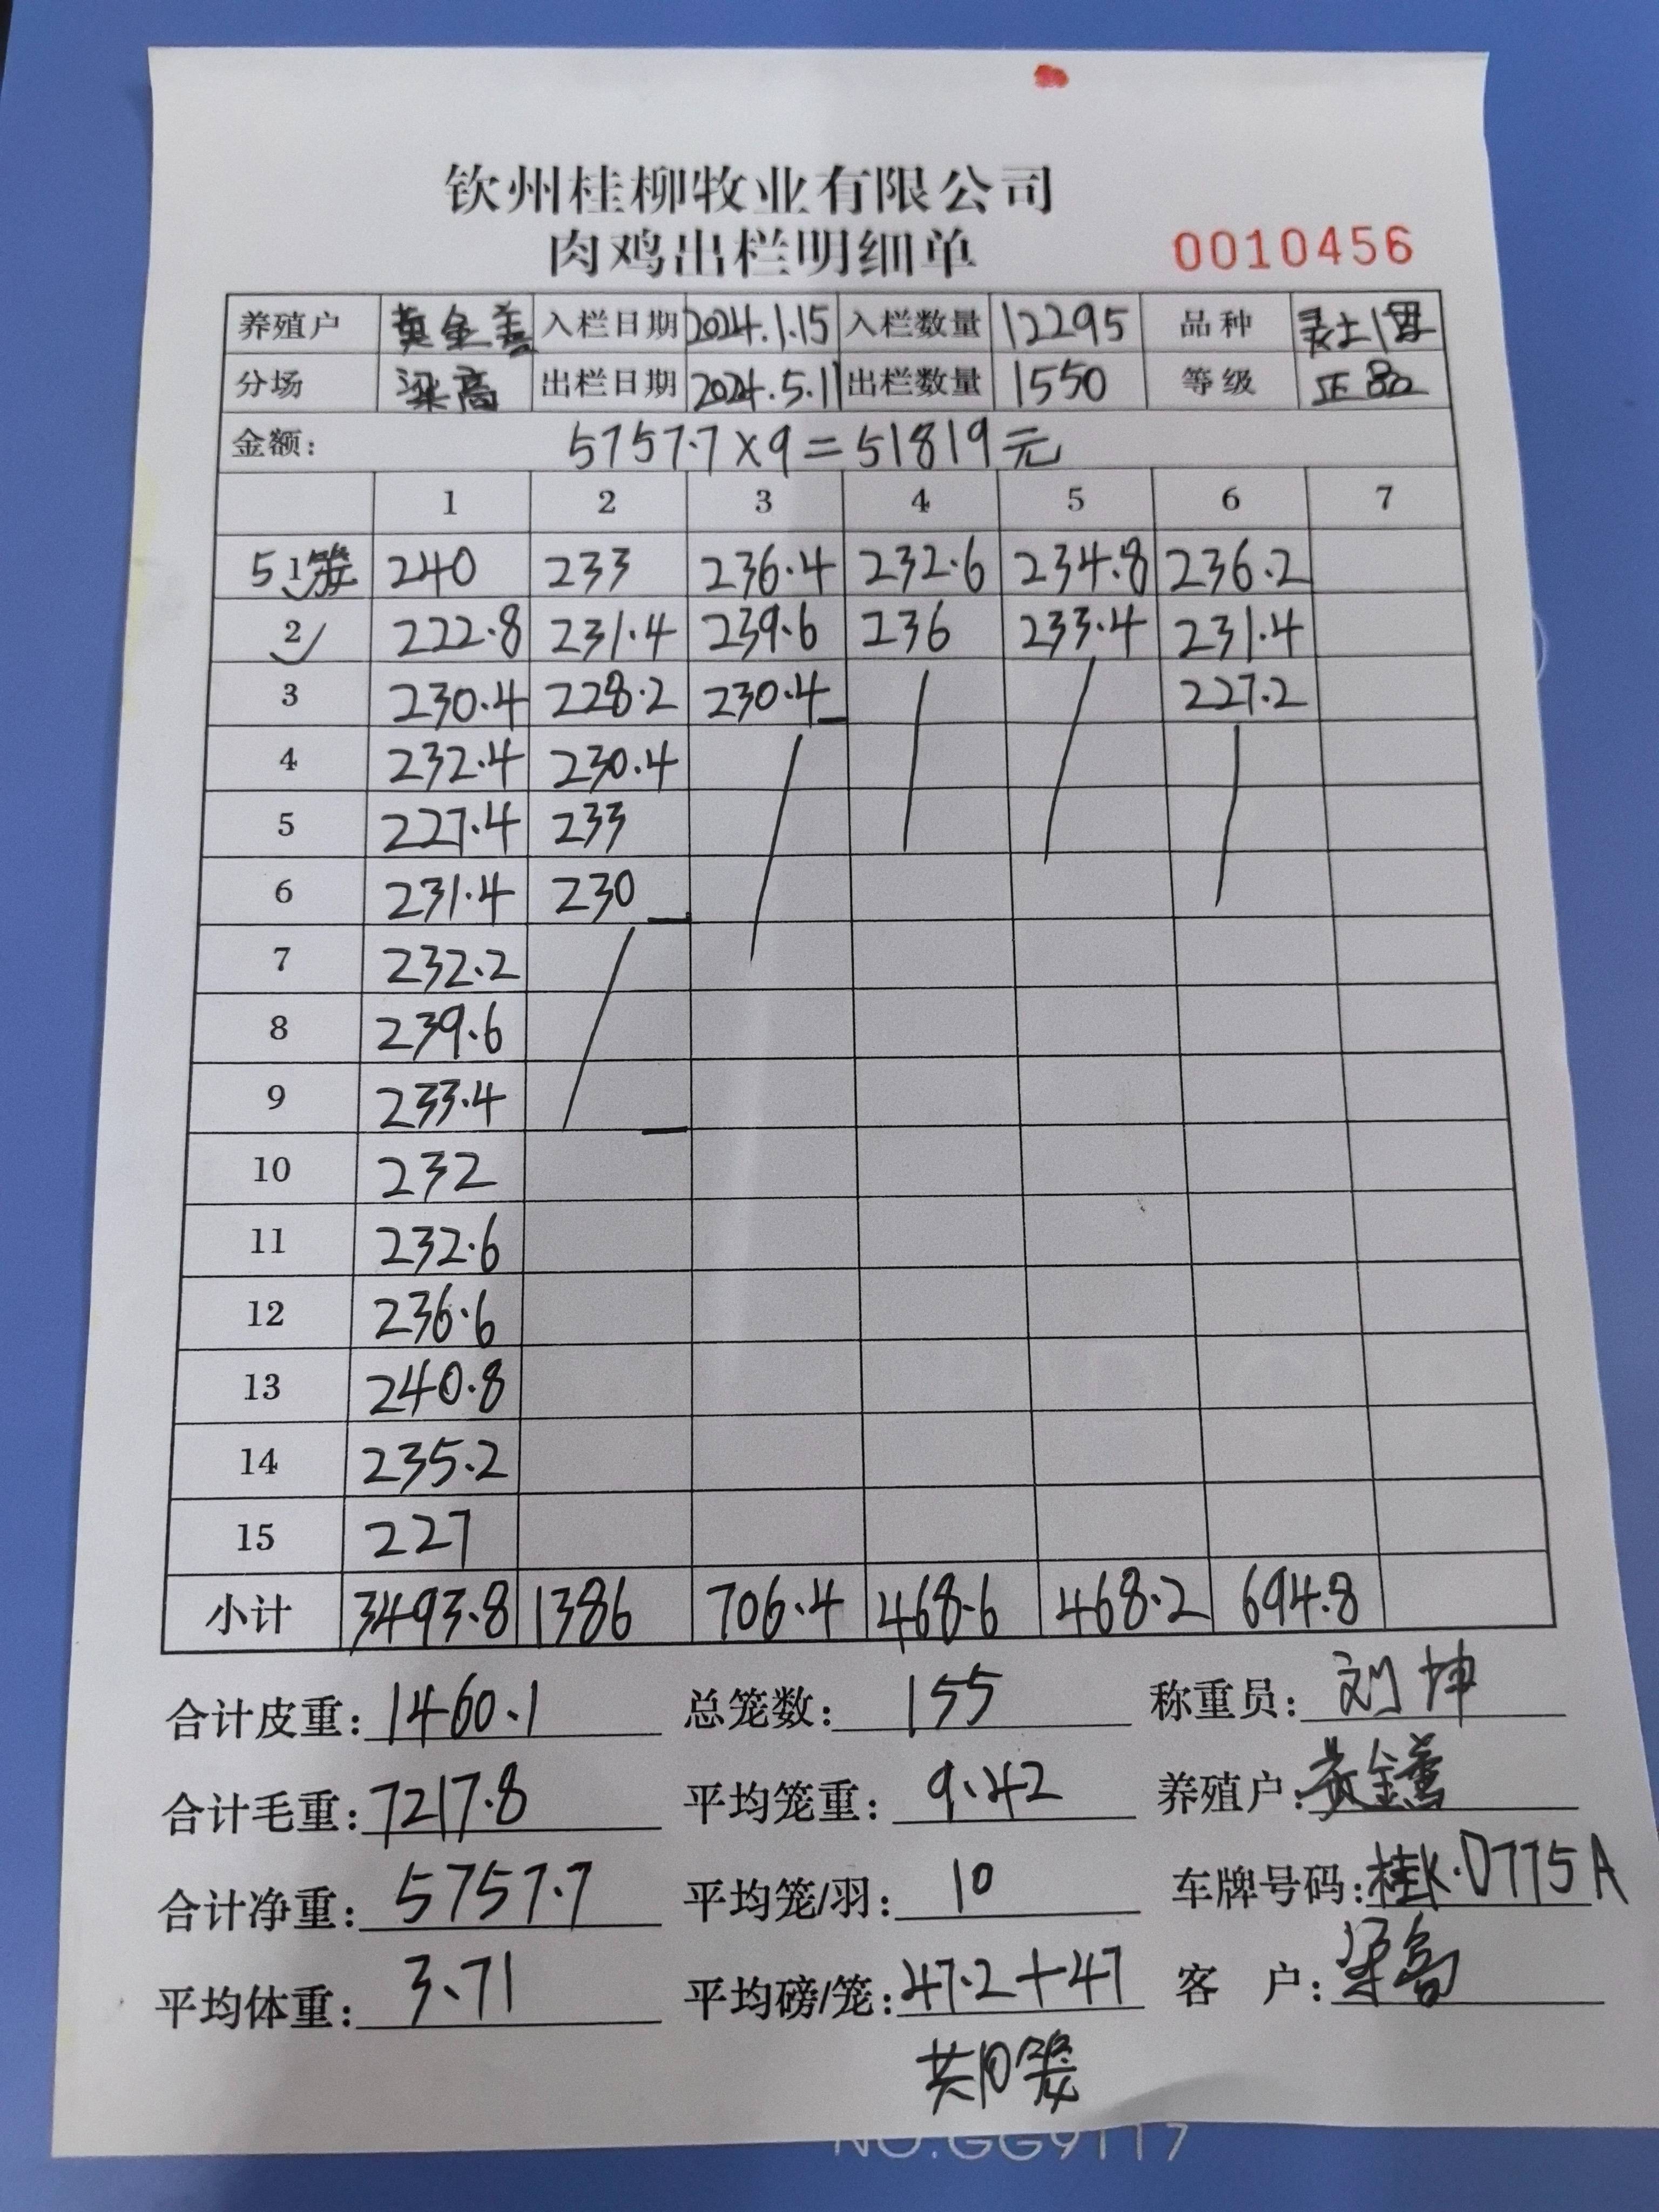 钦州桂柳牧业有限公司
肉鸡出栏明细单
0010456
养殖户 黄金善 入栏日期 2024.1.15 入栏数量 12295 品种
分场 梁高 出栏日期 2024.5.11 出栏数量 1550 等级 正品
金额: 5757.7×9=51819元
1 2 3 4 5 6 7
5 1笼 240 233 236.4 232.6 234.8 236.2
2 222.8 231.4 239.6 236 233.4 231.4
3 230.4 228.2 230.4 227.2
4 232.4 230.4
5 227.4 233
6 231.4 230
7 232.2
8 239.6
9 233.4
10 232
11 232.6
12 236.6
13 240.8
14 235.2
15 227
小计 3493.8 1386 706.4 468.6 468.2 694.8
合计皮重: 1460.1 总笼数: 155 称重员: 刘坤
合计毛重: 7217.8 平均笼重: 9.42 养殖户: 黄金善
合计净重: 5757.7 平均笼/羽: 10 车牌号码: 桂K·D775A
平均体重: 3.71 平均磅/笼: 47.2+47 客户: 梁高
共10笼
NO.GG9117